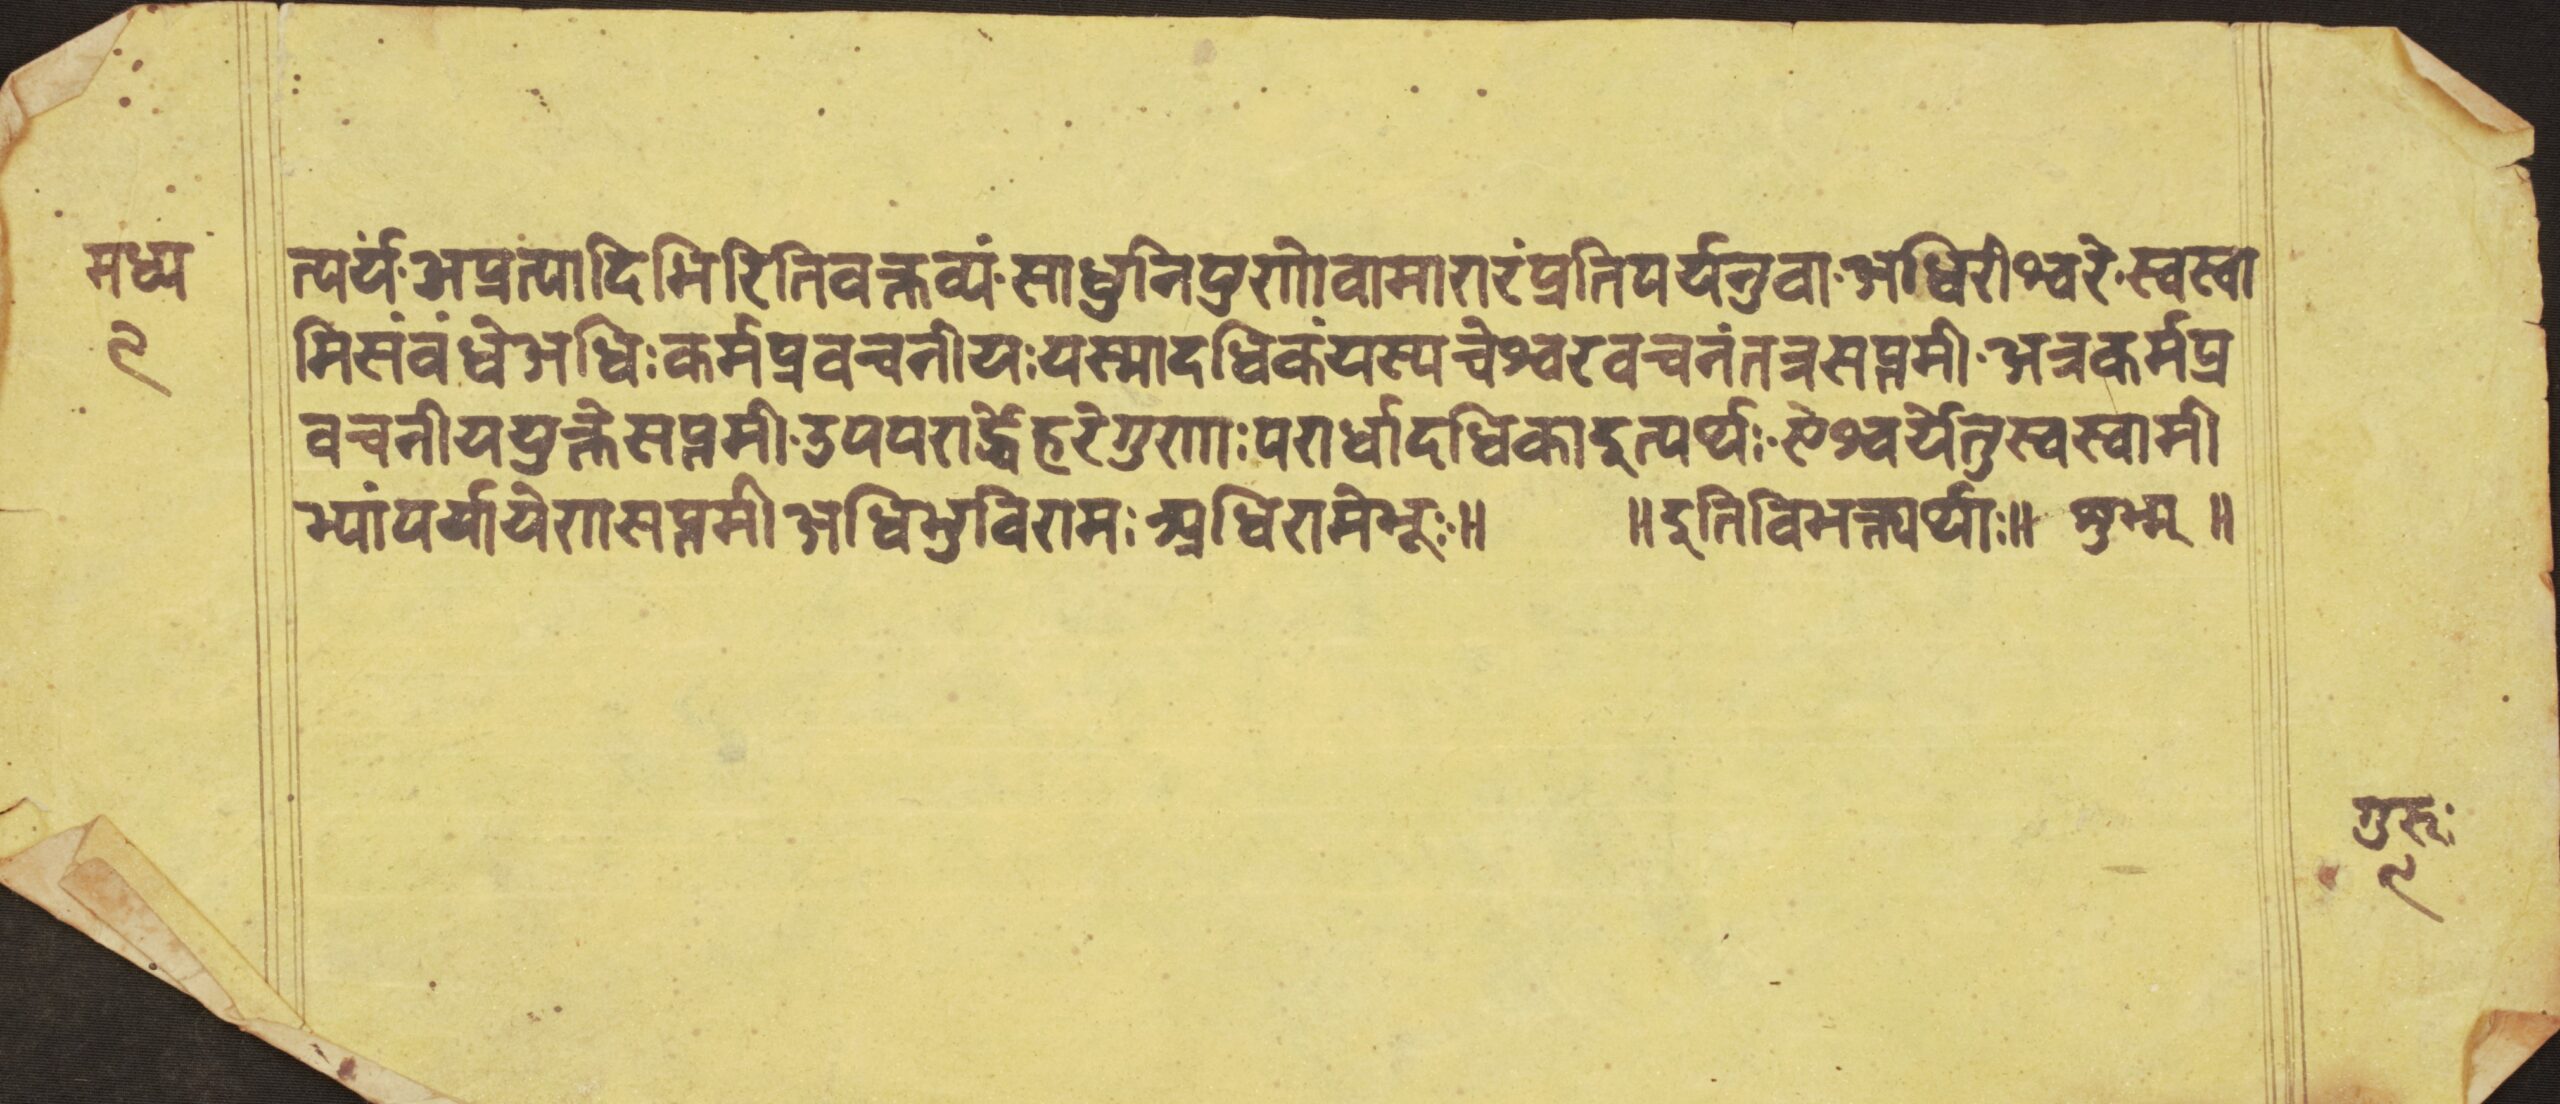 मध्य
९
त्यर्यं·अप्रत्यादिभिरितिवक्तव्यं·साधुनिपुणोवामारारंप्रतिपर्यनुवा·अधिरीश्वरे·स्वस्वा
मिसंवंधेअधिःकर्मप्रवचनीयःयस्मादधिकंयस्यचेश्वरवचनंतत्रसप्तमी·अत्रकर्मप्र
वचनीययुक्तेसप्तमी·उपपरार्द्धेहरेगुणाःपरार्धादधिकाइत्यर्थः·ऐश्वर्येतुस्वस्वामी
भ्यांपर्यायेणसप्तमीअधिभुविरामःअधिरामेभूः॥ ॥इतिविभक्त्यर्थाः॥ शुभम् ॥
गुरुः
९